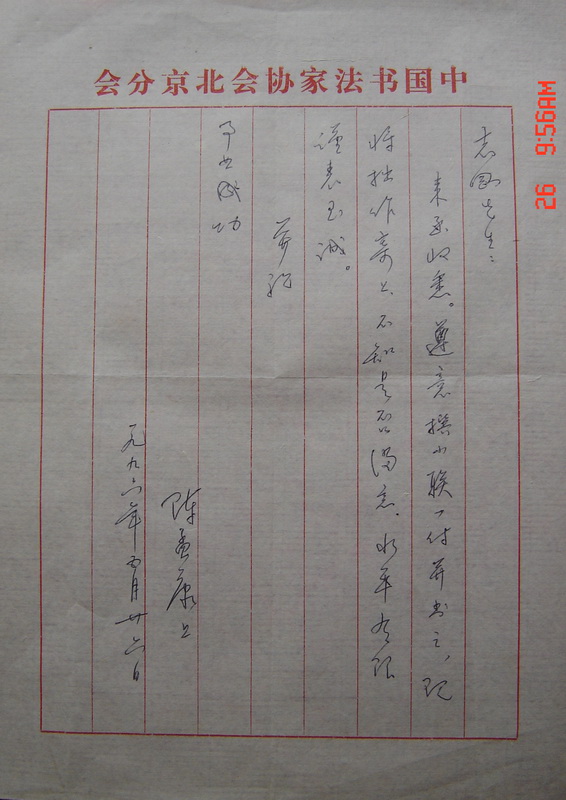 中国书法家协会北京分会
志刚先生：
来函收悉。遵意撰小联一付并书之，现
将拙作寄上，不知是否满意。水平有限
谨表至诚。
并祝
事业成功
陈孟康上
一九九六年五月廿六日
26 9:56AM